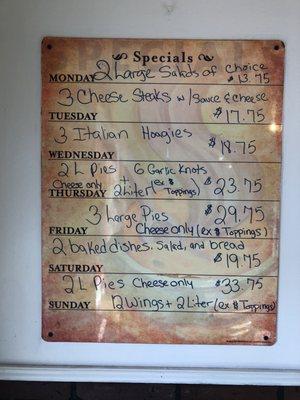 Specials
2 Large Salads of choice
MONDAY $13.75
3 Cheese Steaks w/ Sauce & cheese
TUESDAY $17.75
3 Italian Hoagies
WEDNESDAY $18.75
2 L Pies 6 Garlic Knots
Cheese only + 2 Liter (ex $ Toppings) $23.75
THURSDAY
3 Large Pies $29.75
FRIDAY Cheese only (ex $ Toppings)
2 baked dishes, Salad, and bread
SATURDAY $19.75
2 L Pies Cheese only $33.75
SUNDAY 12 Wings + 2 Liter (ex $ Toppings)